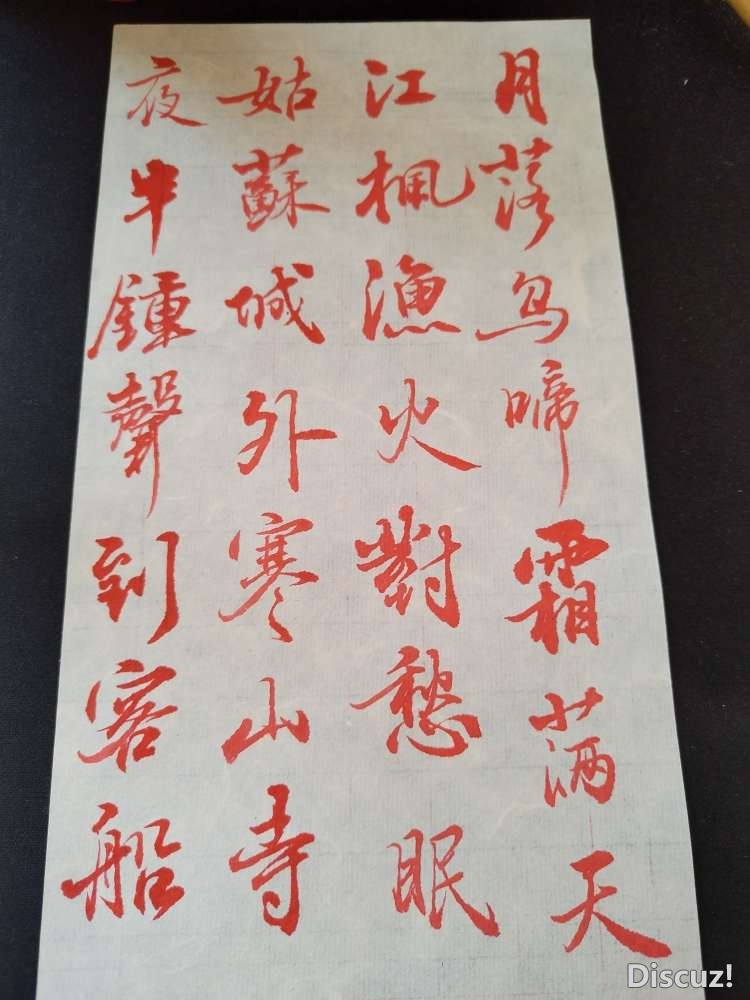 月落烏啼霜滿天
江楓漁火對愁眠
姑蘇城外寒山寺
夜半鍾聲到客船
Discuz!